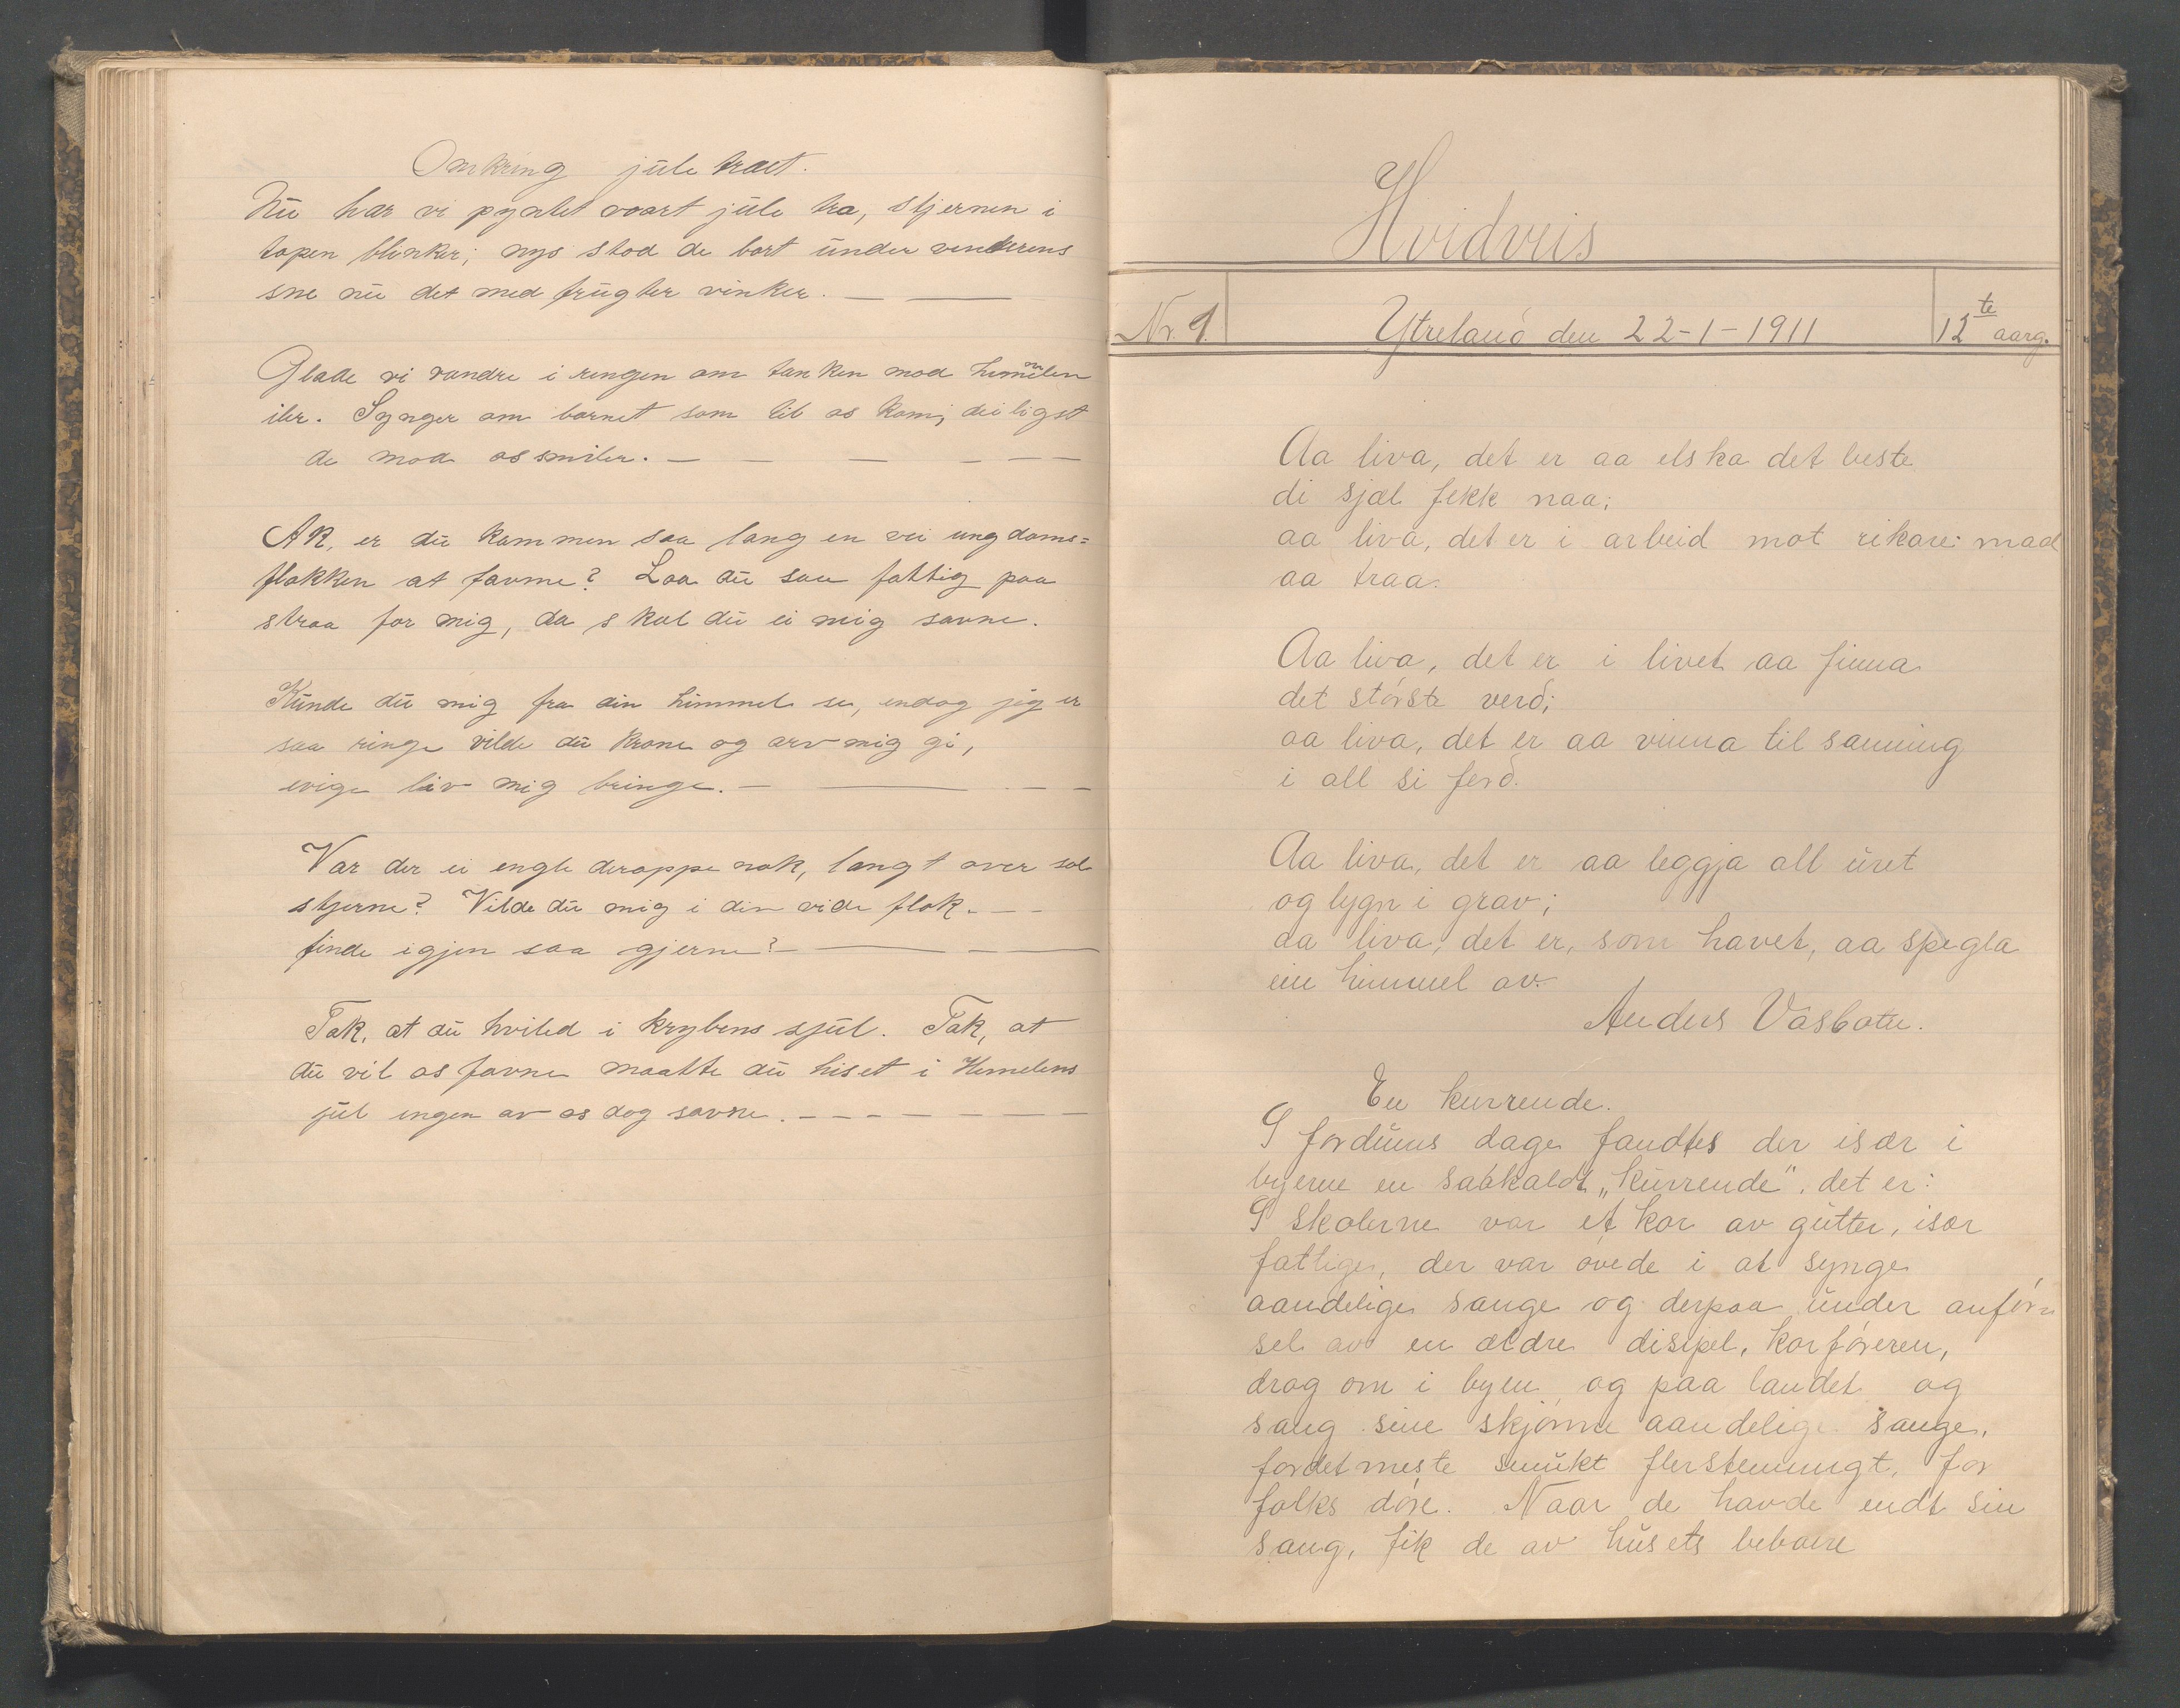 Omkring jule træt.
Nu har vi pyntet voort jule træ, stjernen i
topen blinker; nys stod de bort under vinterens
sne nu det med frugter vinker. — —
Glade vi vandre i ringen om tanken mod himmelen
iler. Synger om barnet som til os kom, deiligst
de mod os smiler. — — — — — —
AK, er du kommen saa lang en vei ungdoms=
flokken at favne? Laa du saa fattig paa
straa for mig, da skal du ei mig savne.
Kunde du mig fra din himmel se, endog jeg er
saa ringe vilde du krone og arv mig gi,
evige liv mig bringe. — — — —
Var der ei engle deroppe nok, langt over sol
stjerne? Vilde du mig i din vide flok. — —
finde igjen saa gjerne? — — —
Tak, at du hviled i krybens sjul. Tak, at
du vil os favne maatte du hiset i Hemelens
jul ingen av os dog savne. — — — — — — —
Hvidveis
Nr. 1. Ytreland den 22-1-1911 12te aarg.
Aa liva, det er aa elska det beste
di sjæl fekk naa;
aa liva, det er i arbeid mot rikare maal
aa traa.
Aa liva, det er i livet aa finna
det störste verd;
aa liva, det er aa vinna til sanning
i all si ferd.
Aa liva, det er aa leggja all uret
og lygn i grav;
aa liva, det er, som havet, aa spegla
ein himmel av.
Anders Vasbotn.
En kurrende.
I fordums dage fandtes der især i
byerne en saakaldt „kurrende", det er:
I skolerne var et kor av gutter, især
fattige, der var övede i at synge
aandelige sange og derpaa under anför=
sel av en ældre disipel, korföreren,
drog om i byen og paa landet og
sang sine skjönne aandelige sange,
fordetmeste smukt flerstemmigt, for
folks döre. Naar de havde endt sin
sang, fik de av husets beboere